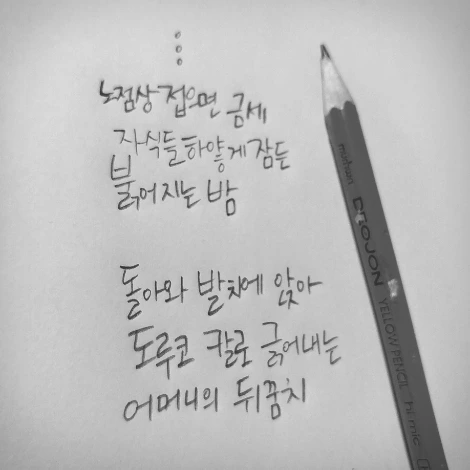 ⋮
노점상 접으면 금세
자식들 하얗게 잠든
붉어지는 밤
돌아와 발치에 앉아
도루코 칼로 긁어내는
어머니의 뒤꿈치
YELLOW PENCIL